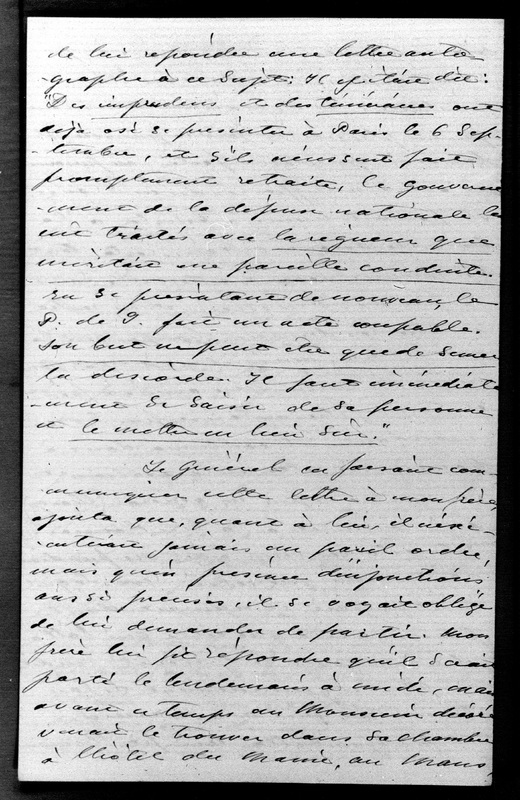 de lui répondre une lettre auto
-graphe à ce sujet: Il y était dit:
"Des imprudens et des téméraires ont
déjà osé se présenter à Paris le 6 Sep-
-tembre, et s'ils n'eussent fait
promptement retraite, le gouverne
-ment de la défense nationale les
eut traités avec la rigueur que
méritait une pareille conduite.
En se présentant de nouveau le
P. de J. fait un acte coupable.
Son but ne peut être que de semer
la discorde. Il faut immédiate
-ment se saisir de sa personne
et le mettre en lieu sûr."
Le Général en faisant com-
muniquer cette lettre à mon frère,
ajouta que, quant à lui, il n'exé-
cuterait jamais un pareil ordre,
mais qu'en présence d'injonctions
aussi précises, il se voyait obligé
de lui demander de partir. Mon
frère lui fit répondre qu'il serait
parti le lendemain à midi, mais
avant ce temps un Monsieur décoré
venait le trouver dans sa chambre
à l'hôtel du Maine, au Mans,